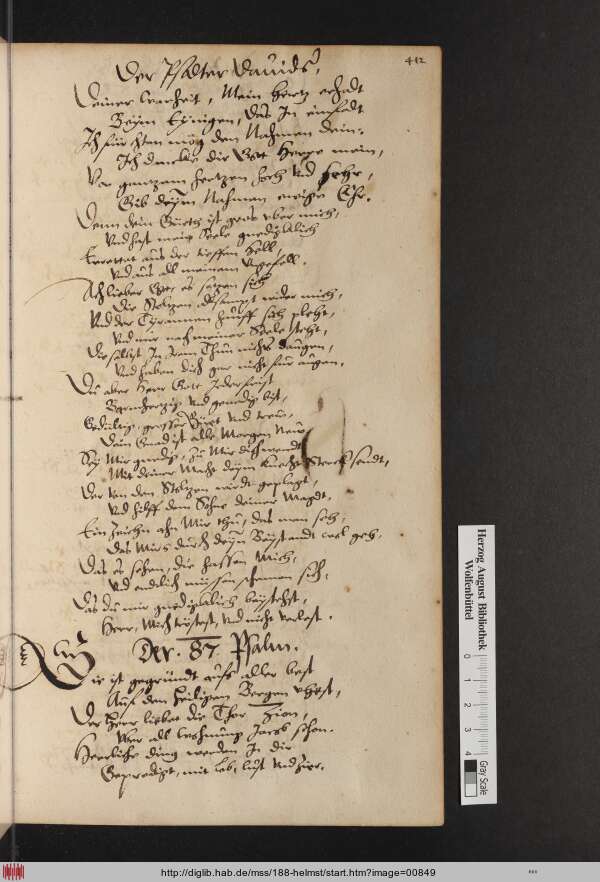 412
Der Psalter Dauids,
Deiner warheit, Mein hertz erhalt
Beym Eynigen, das In einfalt
Ich fürchten mög den Nahmen dein.
Ich dancke dir Gott Herre mein,
Von gantzem hertzen hoch vnd sehr,
Gib deym Nahmen ewige Ehr.
Denn dein Guete ist gros vber mich,
Vnd hast meine Seele gnediglich
Errettet aus der tieffen Hell,
Vnd aus all meinem Vngefell.
Ach lieber Gott, es setzen sich
Die Stoltzen allsampt wider mich,
Vnd der Tyrannen hauff sich
Vnd mir nach meiner Seele steht,
Die selbst In Irem Thun nichts daugen,
Vnd haben dich gar nicht für augen.
Du aber Herr Gott Jeder frist
Barmhertzig vnd genedig bist,
Gedültig, grosser Güet vnd trew,
Dein Gnad ist alle Morgen New
Sey Mir gnedig, zu Mir dich wendt
Mit deiner Macht deym knecht Sterck sendt,
Der von den Stoltzen wirdt geplagt,
Vnd hilff dem Sohne deiner Magdt.
Ein Zeichn ahn Mir thu, das man seh,
Das Mirs durch deyn Beystandt wol geh,
Das es sehen, die hassen Mich,
Vnd endlich müssen schemen sich,
Das du mir gnediglich beystehst,
Herr, Mich tröstest, vnd nicht verlest.
Der 87. Psalm.
Sie ist gegründt auffs aller best
Auf den Heiligen Bergen vhest,
Der Herr liebet die Thor Zion,
Vber all wohnung Jacob schon.
Herrliche ding werden In dir
Geprediget, mit lob, lust vnd Zier.
Herzog August Bibliothek
Wolfenbüttel
0 1 2 3 4
Gray Scale
http://diglib.hab.de/mss/188-helmst/start.htm?image=00849